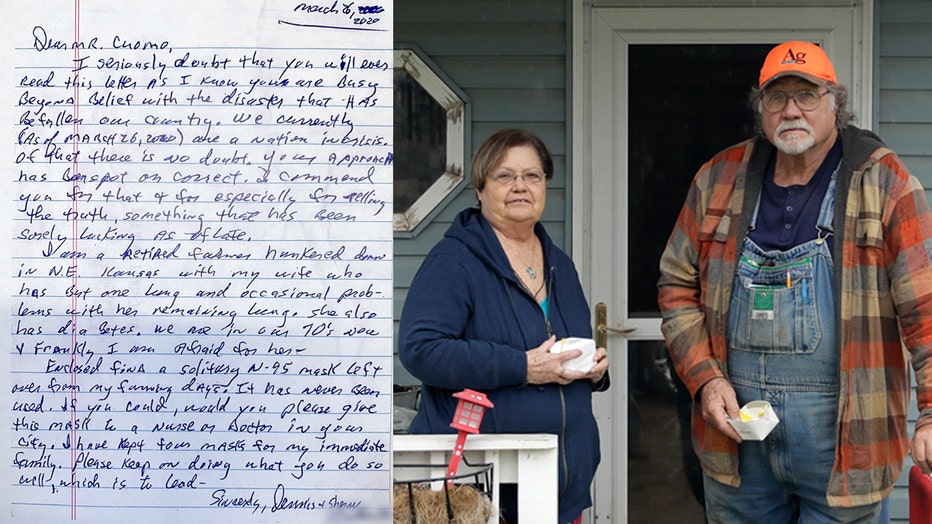 March 26, 2020
Dear Mr. Cuomo,
I seriously doubt that you will ever
read this letter as I know you are busy
beyond belief with the disaster that has
befallen our country. We currently
(as of March 26, 2020) are a nation in crisis.
Of that there is no doubt. Your approach
has been spot on correct. I commend
you for that & for especially for telling
the truth, something that has been
sorely lacking as of late.
I am a retired farmer hunkered down
in N.E. Kansas with my wife who
has but one lung and occasional prob-
lems with her remaining lung. She also
has diabetes. We are in our 70's now
& frankly I am afraid for her-
Enclosed find a solitary N-95 mask left
over from my farming days. It has never been
used. If you could, would you please give
this mask to a nurse or doctor in your
city. I have kept four masks for my immediate
family. Please keep on doing what you do so
well, which is to lead-
Sincerely, Dennis & Sharon
Ag